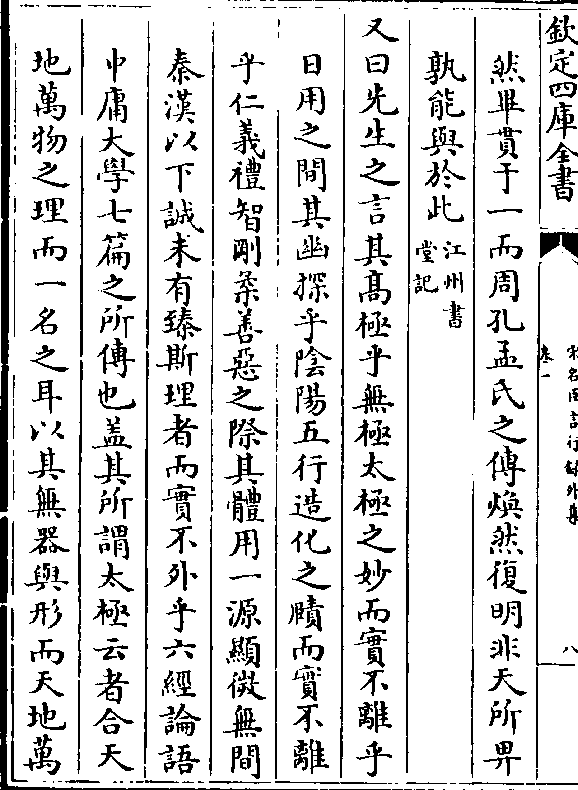 欽定四庫全書
宋名臣言行錄外集
卷一
八
然畢貫于一而周孔孟氏之傳煥然復明非天所畀
孰能與於此江州書堂記
又曰先生之言其髙極乎無極太極之妙而實不離乎
日用之間其幽探乎陰陽五行造化之賾而實不離
乎仁義禮智剛柔善惡之際其體用一源顯微無間
秦漢以下誠未有臻斯理者而實不外乎六經論語
中庸大學七篇之所傳也盖其所謂太極云者合天
地萬物之理而一名之耳以其無器與形而天地萬